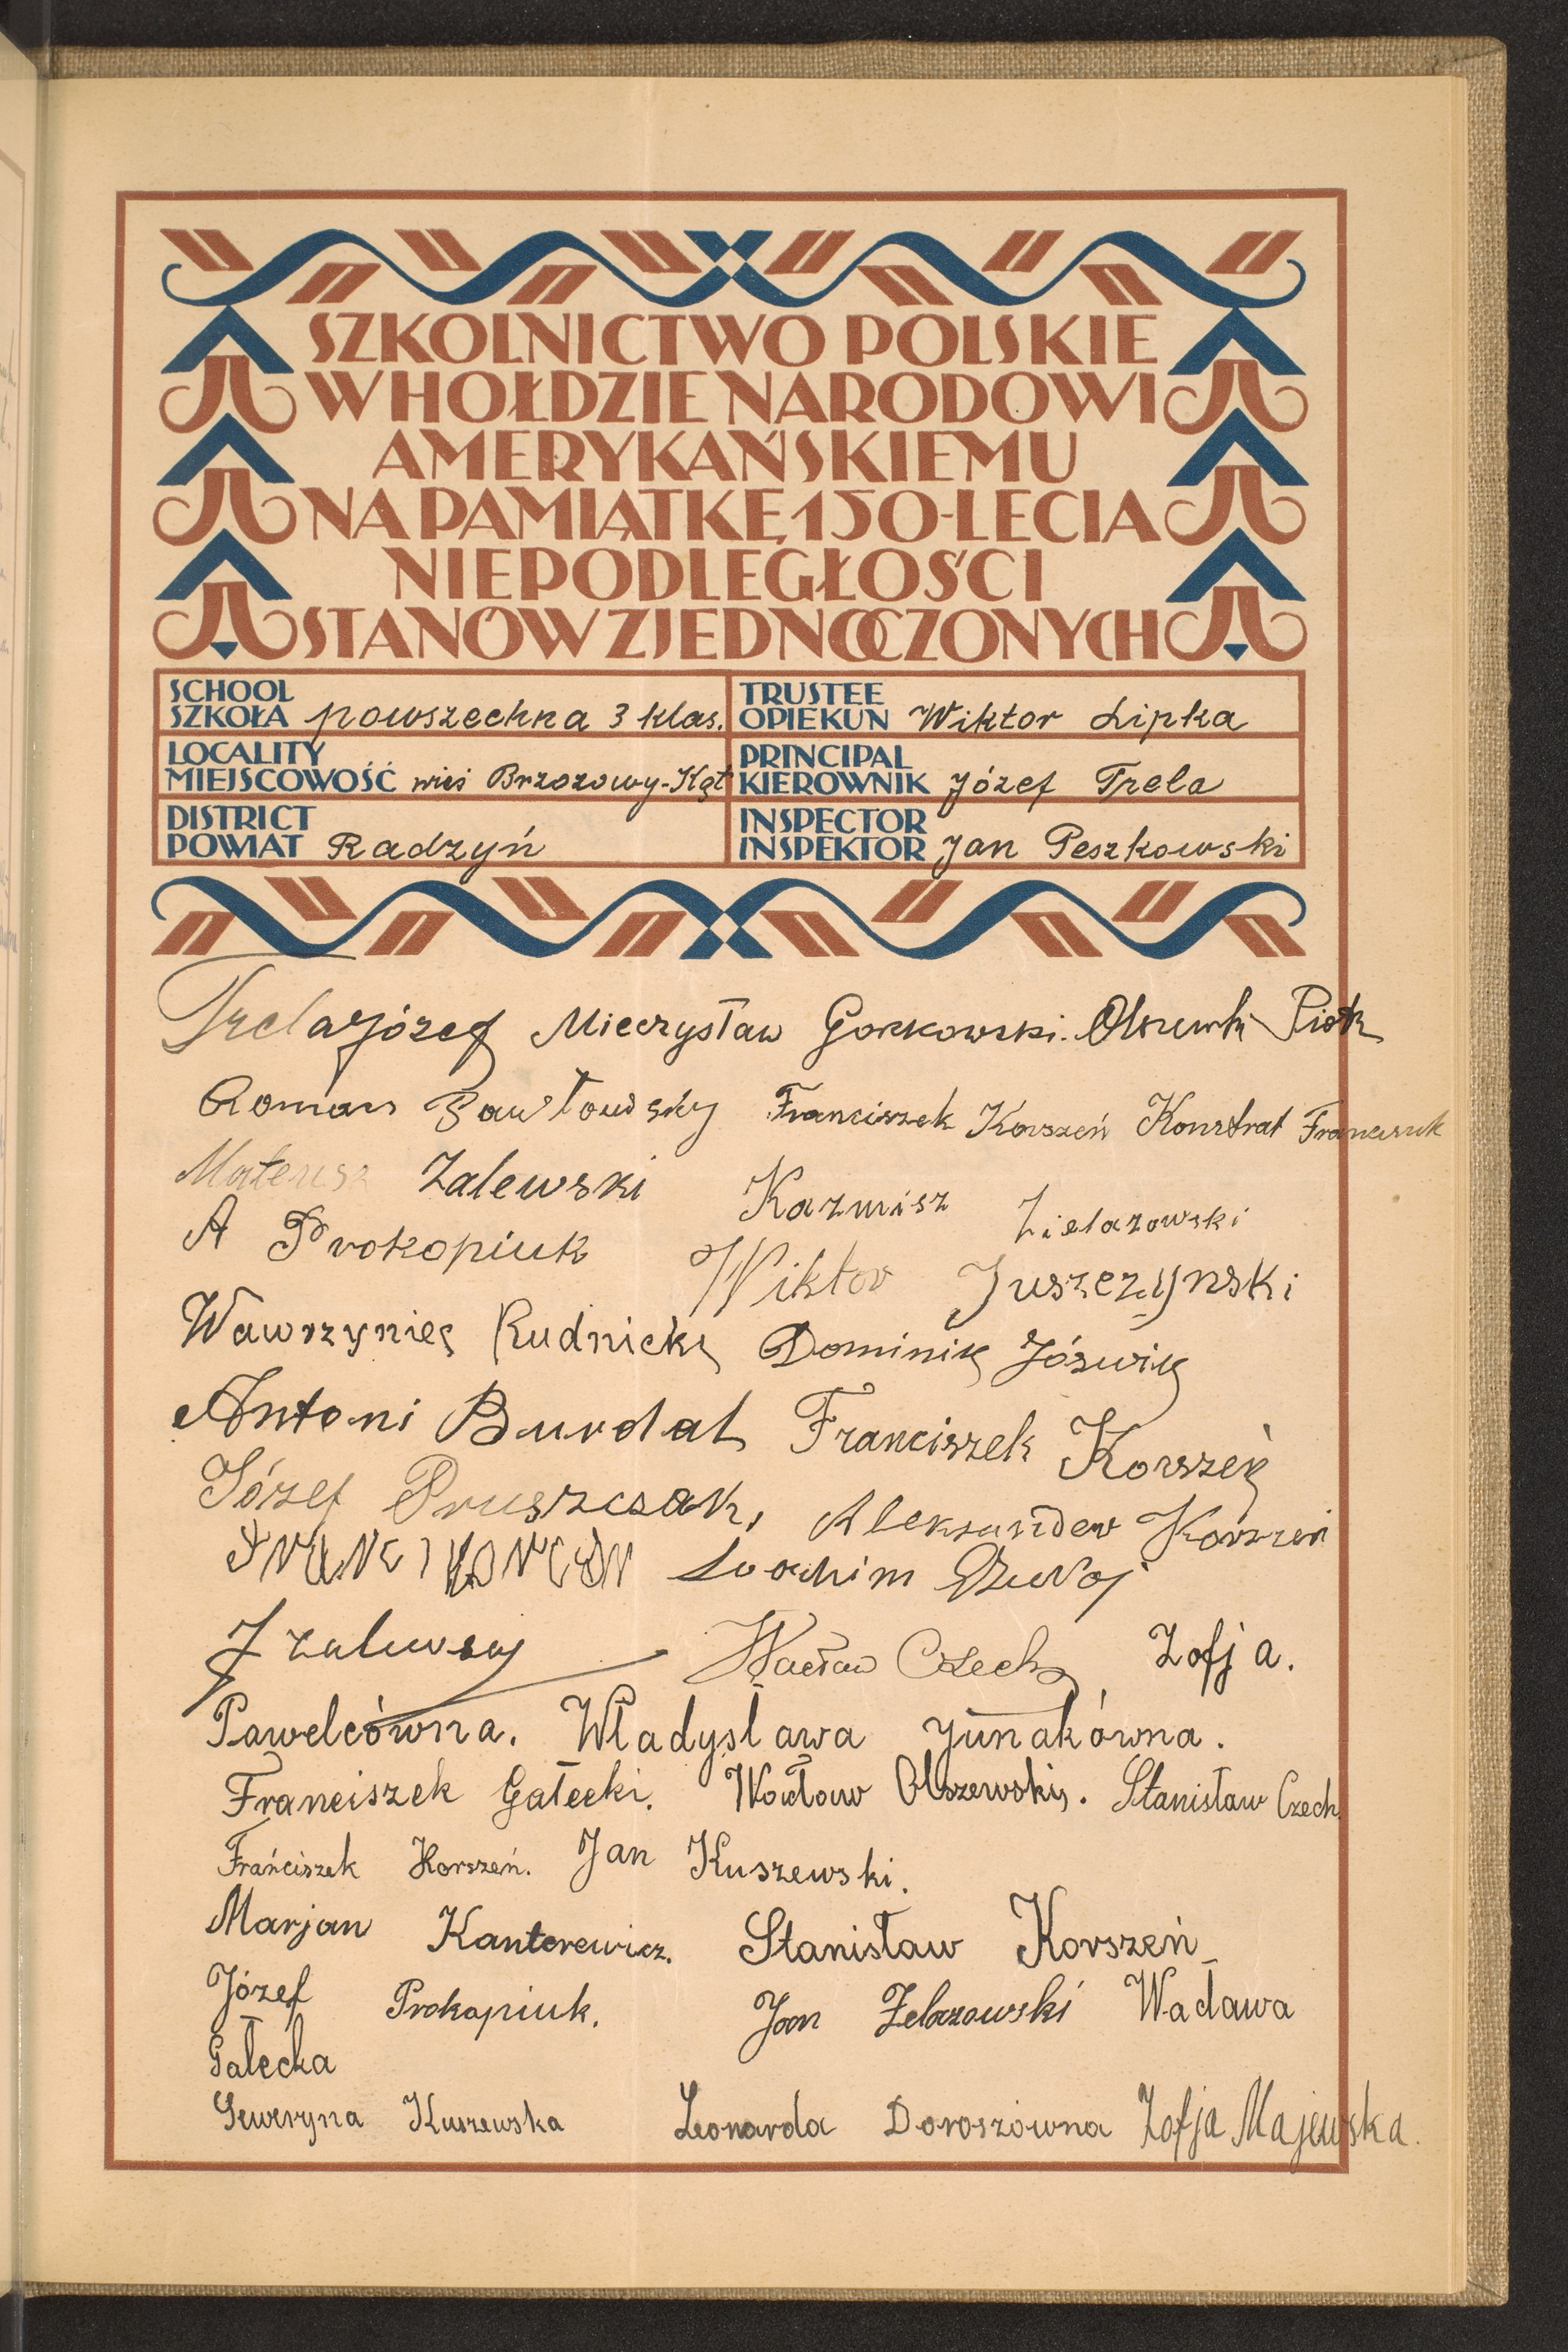 SZKOLNICTWO POLSKIE
W HOŁDZIE NARODOWI
AMERYKAŃSKIEMU
NA PAMIĄTKĘ 150-LECIA
NIEPODLEGŁOŚCI
STANÓW ZJEDNOCZONYCH
SCHOOL
SZKOŁA powszechna 3 klas.
TRUSTEE
OPIEKUN Wiktor Lipka
LOCALITY
MIEJSCOWOŚĆ wieś Brzozowy-Kąt
PRINCIPAL
KIEROWNIK Józef Trela
DISTRICT
POWIAT Radzyń
INSPECTOR
INSPEKTOR Jan Peszkowski
Trela Józef Mieczysław Gorkowski. Piotr
Roman Franciszek Korszeń Franciszek
Mateusz Zalewski Kazmisz
A Prokopiuk Wiktor Juszczynski
Wawrzyniec Rudnicki Dominik Jóźwik
Antoni Burdal Franciszek Korszeń
Józef Pruszcsak, Aleksander Korszeń
Wacław Czech Zofja.
Pawelcówna. Władysława Junakówna.
Franciszek Gałecki. Wacław Olszewski. Stanisław Czech.
Franciszek Korszeń. Jan Kuszewski.
Marjan Kanterewicz. Stanisław Korszeń
Józef Prokopiuk. Jan Żelazowski Wacława
Gałecka
Seweryna Kuszewska Leonarda Doroszówna Zofja Majewska.